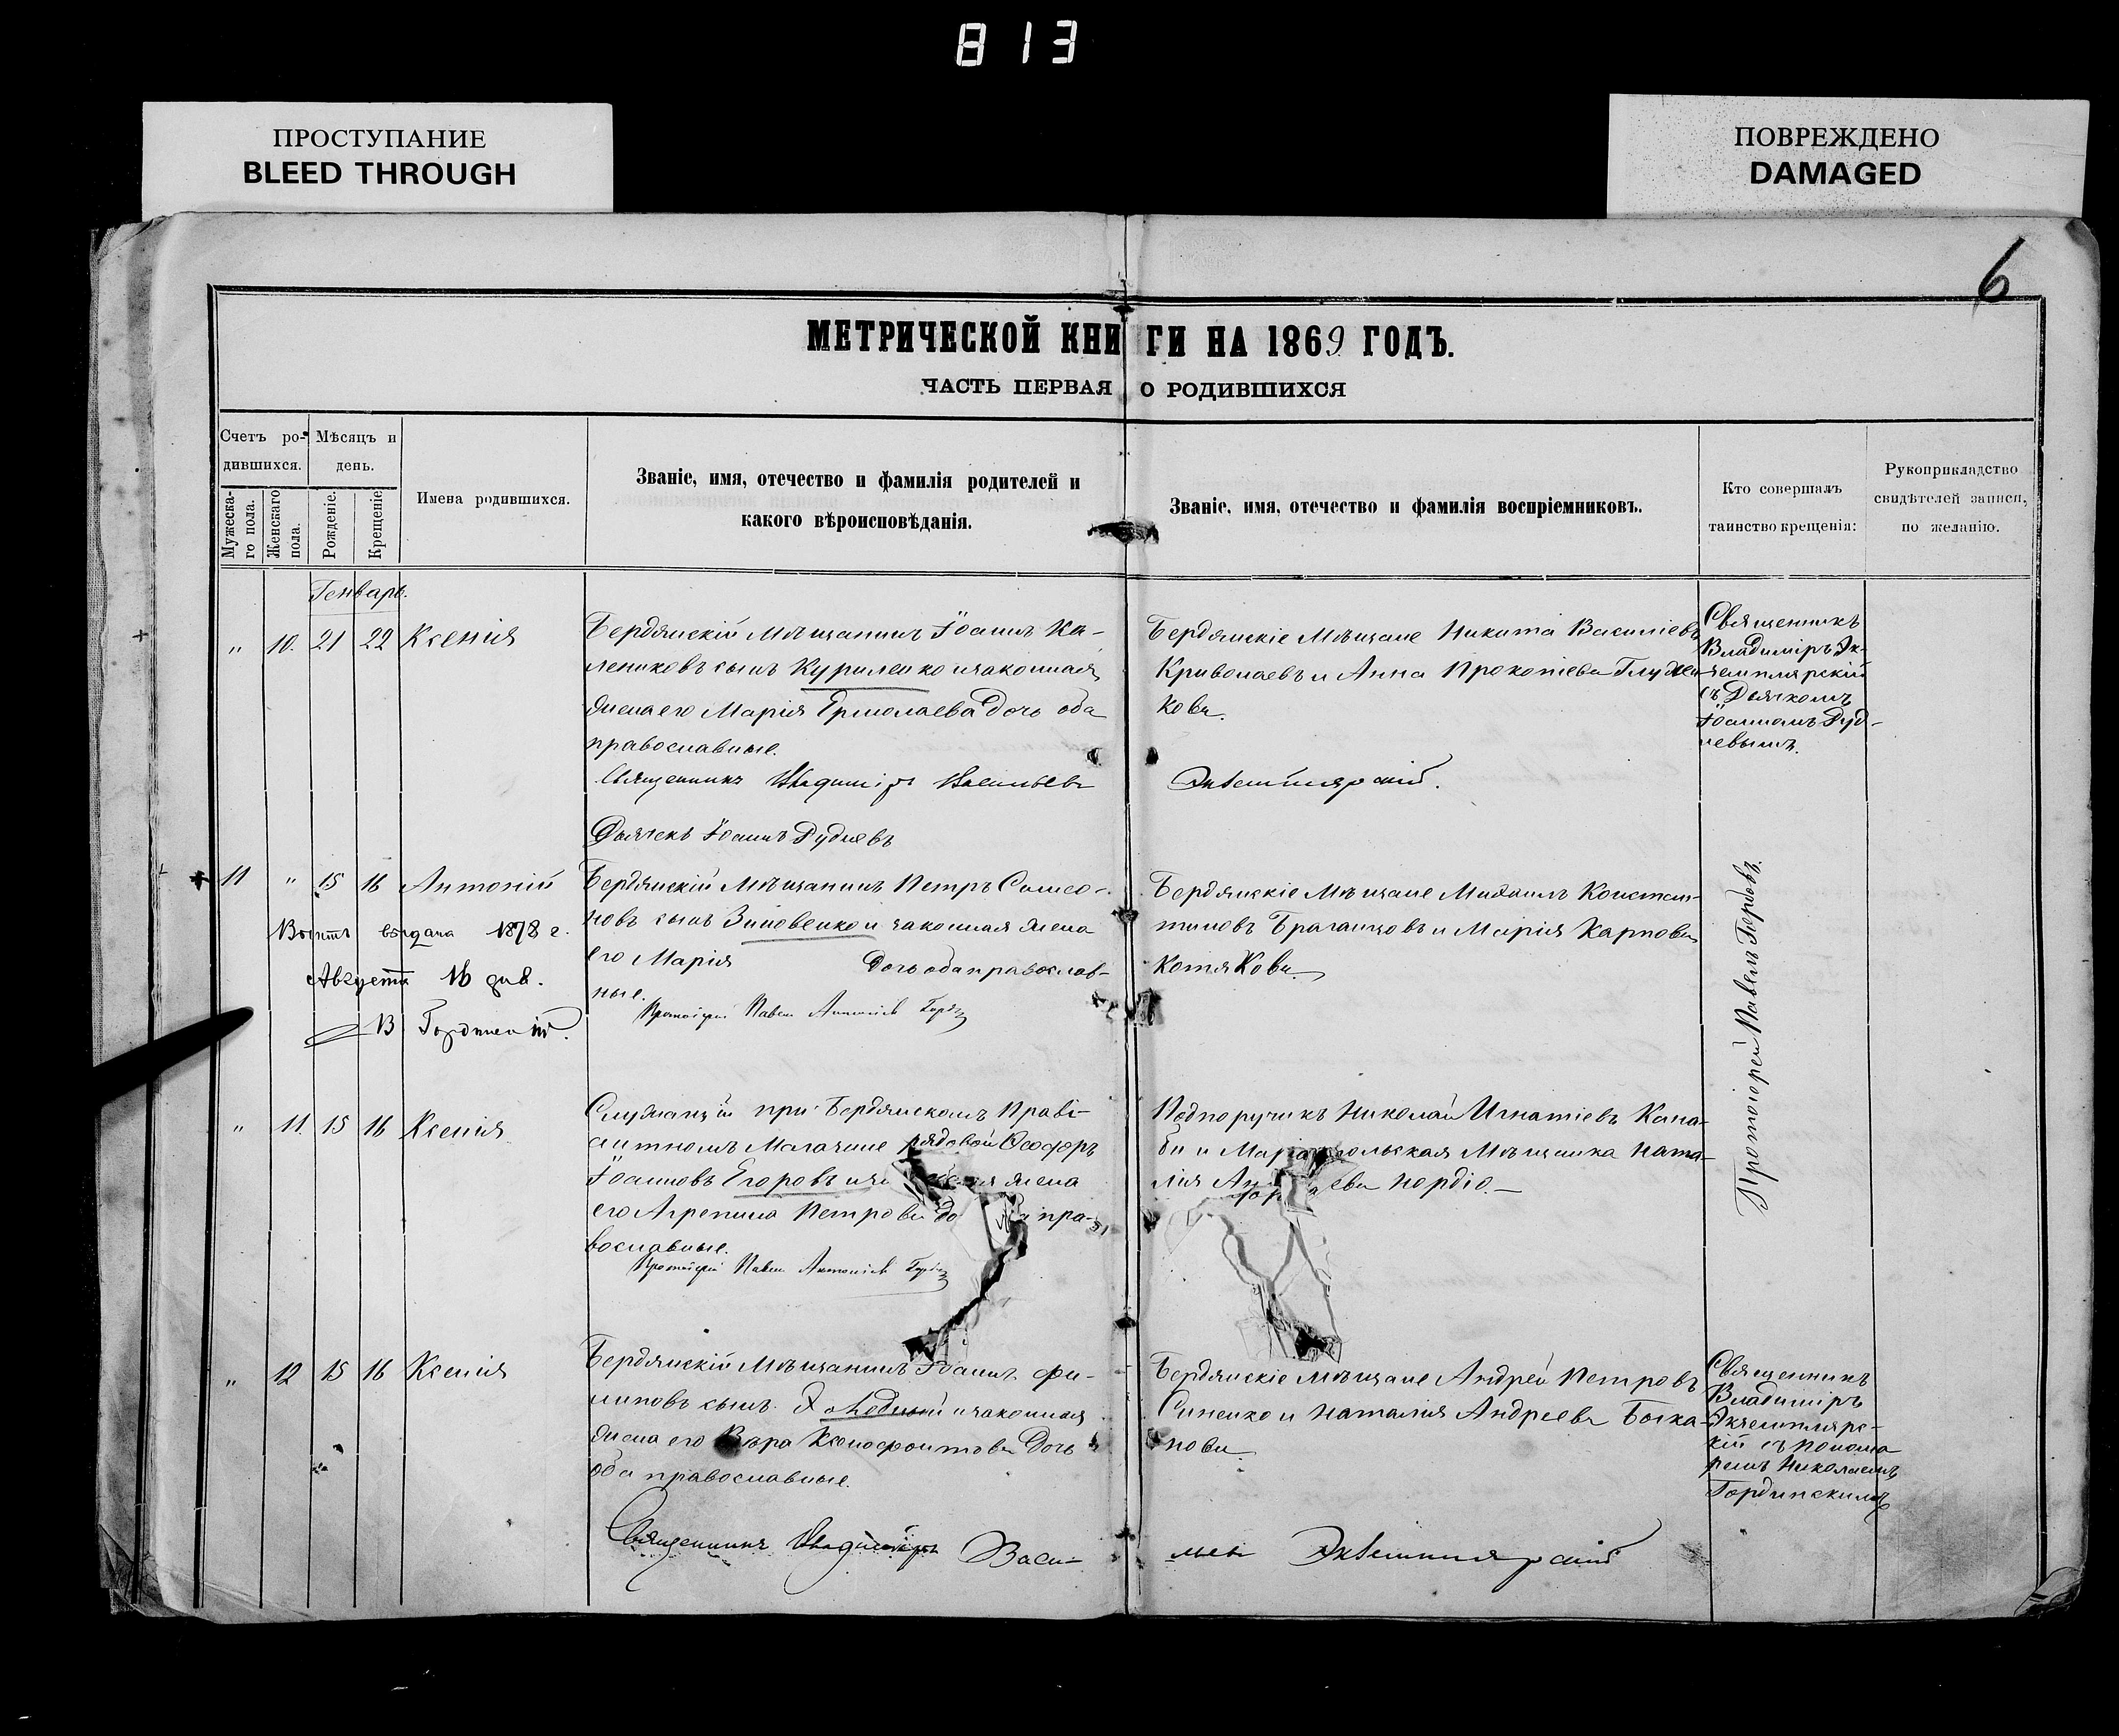 813
ПРОСТУПАНИЕ
BLEED THROUGH
ПОВРЕЖДЕНО
DAMAGED
6
МЕТРИЧЕСКОЙ КНИГИ НА 1869 ГОДЪ.
ЧАСТЬ ПЕРВАЯ О РОДИВШИХСЯ
Счетъ ро-
дившихся.
Мужеска-
го пола.
Женскаго
пола.
Мѣсяцъ и
день.
Рожденіе.
Крещеніе
Имена родившихся.
Званіе, имя, отечество и фамилія родителей и
какого вѣроисповѣданія.
Званіе, имя, отечество и фамилія воспріемниковъ.
Кто совершалъ
таинство крещенія:
Рукоприкладство
свидѣтелей записи,
по желанію.
Генварь.
" 10. 21 22 Ксенія
Бердянскій Мѣщанинъ Іоаннъ Ка-
лениковъ сынъ Куриленко и законная
жена его Марія Ермолаева дочь оба
православные.
Священникъ Владиміръ Васильевъ
Дьячекъ Іоаннъ Рудневъ
Бердянскіе Мѣщане Никита Василіевъ
Криволаевъ и Анна Прокопіева
кова.
Экземплярскій.
Священникъ
Владиміръ Эк-
земплярскій
съ Дьячкомъ
Іоанномъ Руд-
невымъ.
11 " 15 16 Антоній
выдана 1878 г.
Августа 16 дня.
Бердянскій Мѣщанинъ Петръ Симео-
новъ сынъ Зиновенко и законная жена
его Марія дочь оба православ-
ные.
Протоіерей Павелъ Антоніевъ
Бердянскіе Мѣщане Михаилъ Констан-
тиновъ Браганцовъ и Марія Карпова
Котякова.
Протоіерей Павелъ Гербовъ.
" 11. 15 16 Ксенія
Служащій при Бердянскомъ Прові-
антномъ Магазине рядовой Ѳеодоръ
Іоанновъ Егоровъ и жена
его Агрепина Петрова пра-
вославные.
Протоіерей Павелъ Антоніевъ
Подпоручикъ Николай Игнатіевъ Капа-
би и Маріупольская Мѣщанка Ната-
лія Нордіо.
" 12 15 16 Ксенія
Бердянскій Мѣщанинъ Іоаннъ Фи-
липовъ сынъ и законная
жена его Вѣра Ксенофонтова дочь
оба православные.
Священникъ Владиміръ Васи-
Бердянскіе Мѣщане Андрей Петровъ
Синенко и Наталія Андреева Бока-
нова.
льевъ Экземплярскій
Священникъ
Владиміръ
Экземпляр-
кій съ Понома
ремъ Николаемъ
Гординскимъ